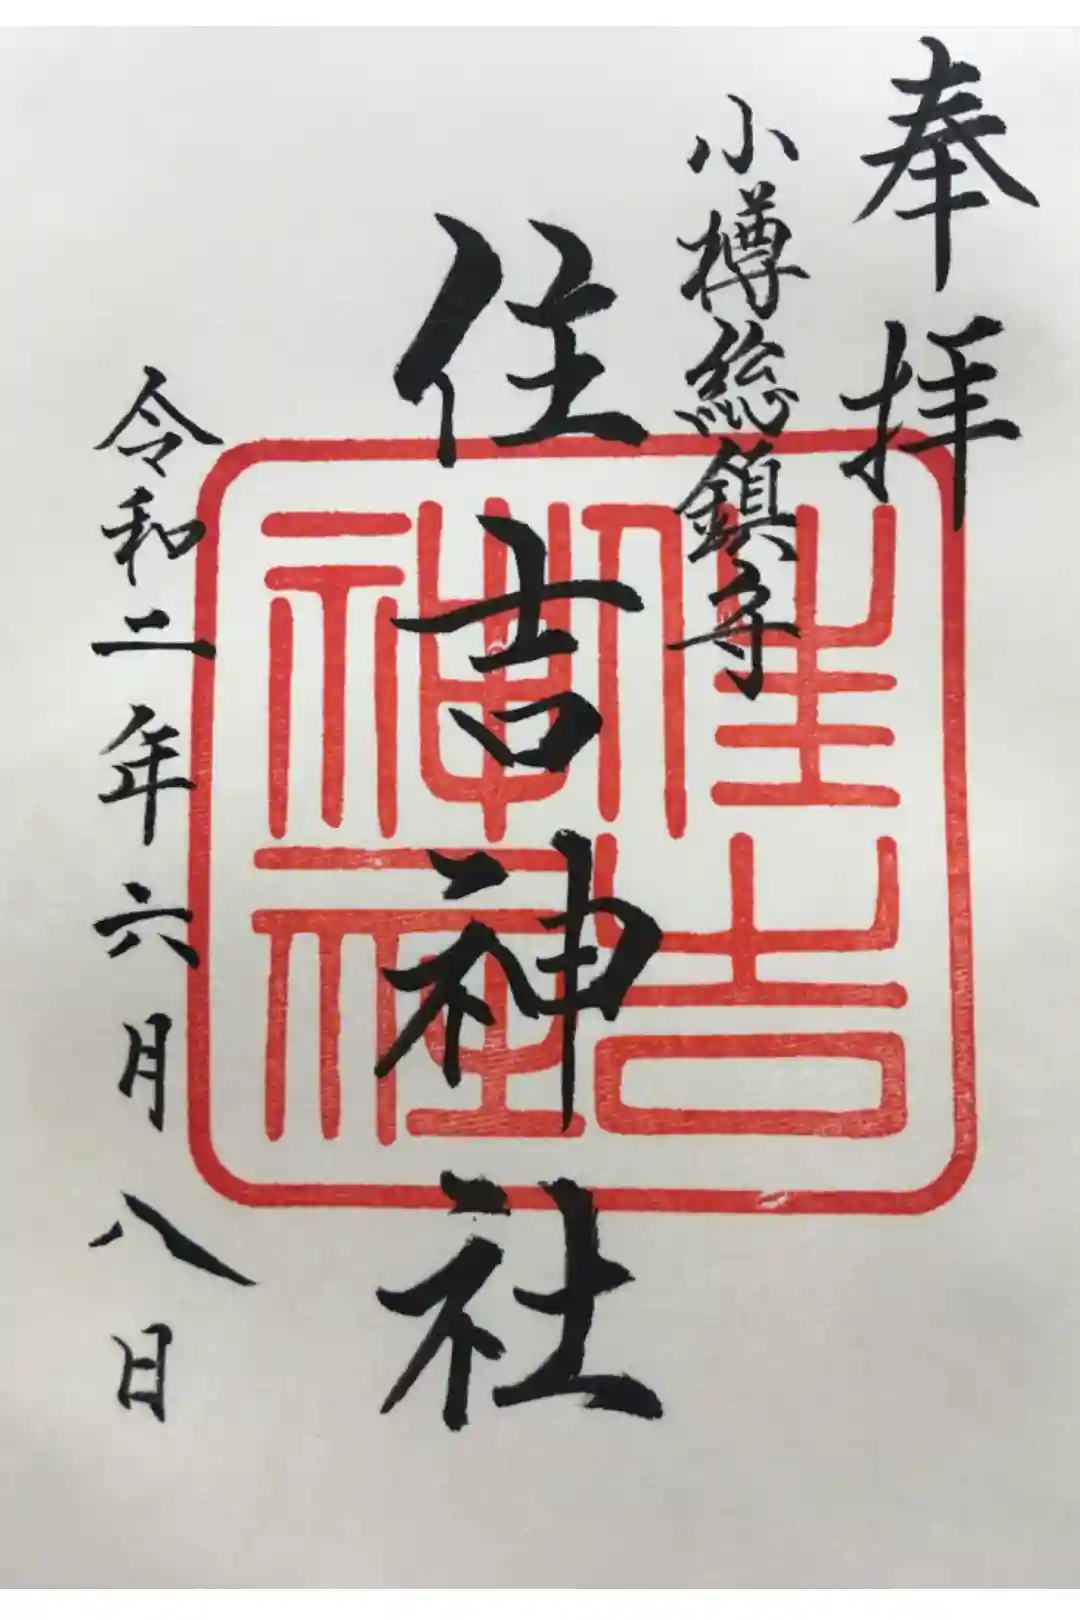 奉拝
小樽総鎮守
住吉神社
住吉神社
令和二年六月八日